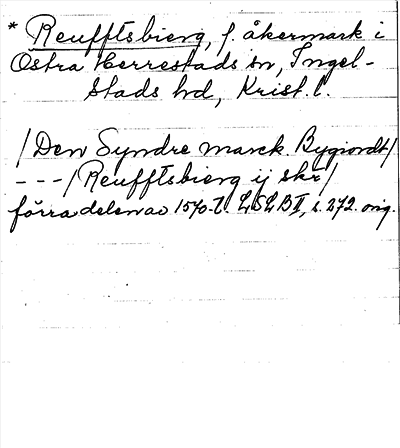 * Reufftsbierg, f. åkermark i
Östra Herrestads sn, Ingel-
stads hd, Krist. l.
/Den Syndre marck. Bygiordt/
---/Reufftsbierg ij skr/
förra delen av 1570-t. LSLB II, s. 272. orig.